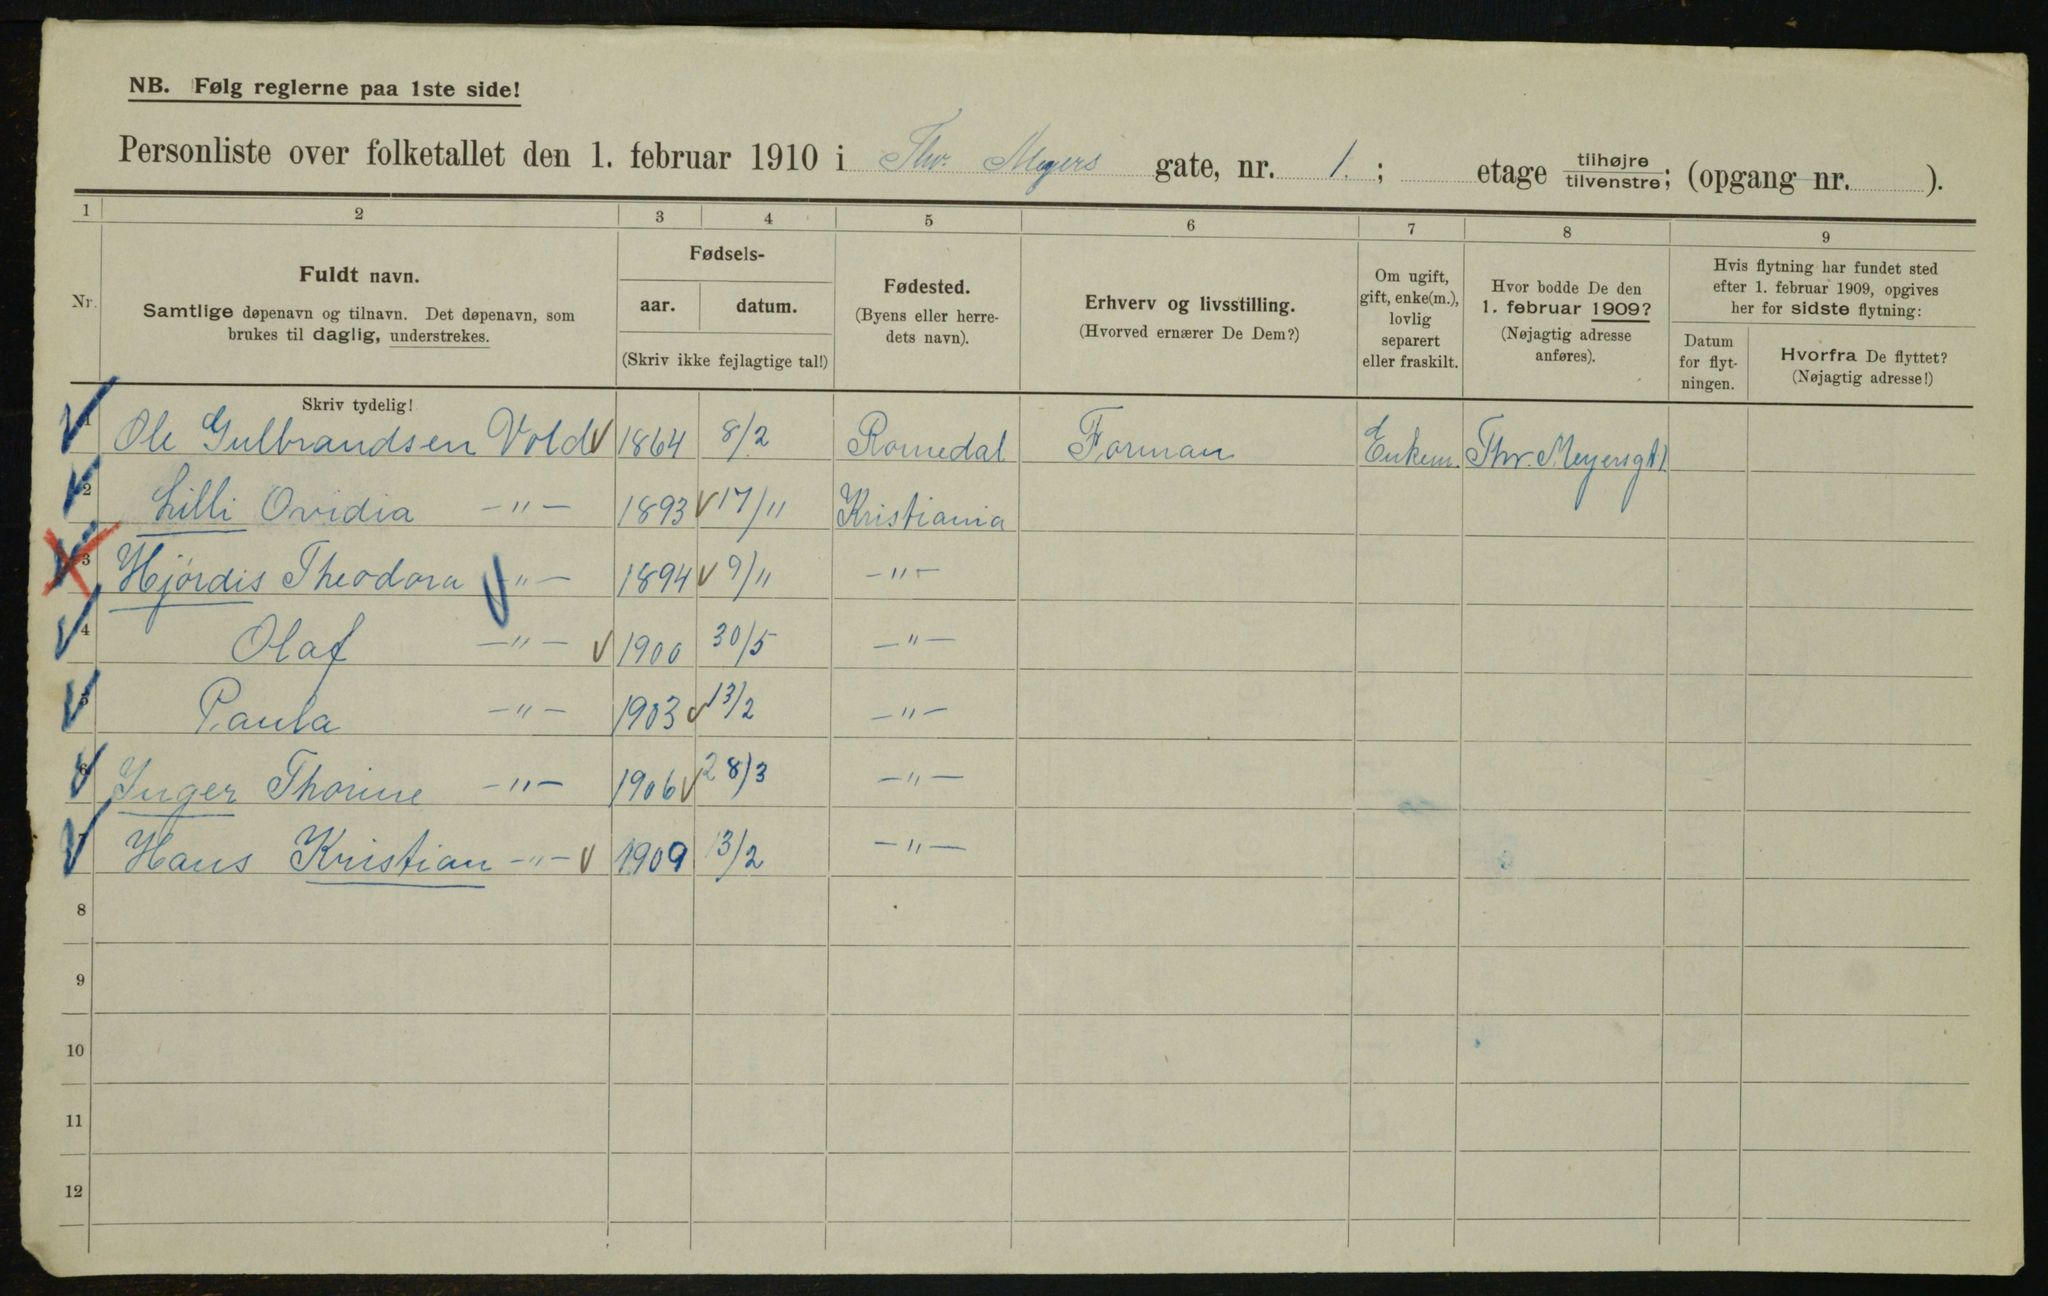 NB. Følg reglerne paa 1ste side!
Personliste over folketallet den 1. februar 1910 i Thv. Meyers gate, nr. 1. ; etage tilhøjre/tilvenstre; (opgang nr. ).
1 2 3 4 5 6 7 8 9
Nr.
Fuldt navn.
Samtlige døpenavn og tilnavn. Det døpenavn, som
brukes til daglig, understrekes.
Skriv tydelig!
Fødsels-
aar. datum.
(Skriv ikke fejlagtige tal!)
Fødested.
(Byens eller herre-
dets navn).
Erhverv og livsstilling.
(Hvorved ernærer De Dem?)
Om ugift,
gift, enke(m.),
lovlig
separert
eller fraskilt.
Hvor bodde De den
1. februar 1909?
(Nøjagtig adresse
anføres).
Hvis flytning har fundet sted
efter 1. februar 1909, opgives
her for sidste flytning:
Datum
for flyt-
ningen.
Hvorfra De flyttet?
(Nøjagtig adresse!)
1 Ole Gulbrandsen Vold 1864 8/2 Romedal Forman Enkem. Thv. Meyersgt 1
2 Lilli Ovidia —"— 1893 17/11 Kristiania
3 Hjördis Theodora —"— 1894 9/11 —"—
4 Olaf —"— 1900 30/5 —"—
5 Paula —"— 1903 13/2 —"—
6 Inger Thorine —"— 1906 28/3 —"—
7 Hans Kristian —"— 1909 13/2 —"—
8
9
10
11
12